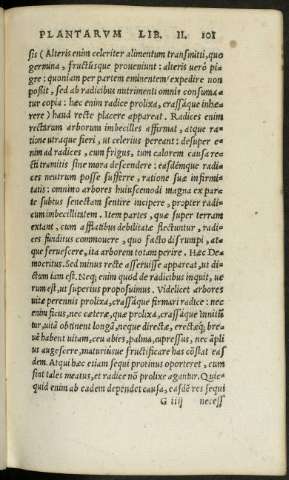 PLANTARVM LIB. II. 101
sis (Alteris enim celeriter alimentum transmitti, quo
germina, fructúsque proueniunt: alteris verò pi⸗
gre: quoniam per partem eminentem expedire non
possit, sed ab radicibus nutrimenti omnis consuma⸗
tur copia: hæc enim radice prolixa, crassáque inhæ⸗
rere) haud recte placere appareat. Radices enim
rectarum arborum imbecilles affirmat, atque ra⸗
tione utraque fieri, ut celerius pereant: desuper e⸗
nim ad radices, cum frigus, tum calorem causa re⸗
cti transitis sine mora descendere: easdémque radi⸗
ces neutrum posse sufferre, ratione suæ infirmi⸗
tatis: omnino arbores huiuscemodi magna ex par⸗
te subtus senectam sentire incipere, propter radi⸗
cum imbecillitatem. Item partes, quæ super terram
extant, cum afflatibus debilitatæ flectuntur, radi⸗
ces funditus commouere, quo facto disrumpi, at⸗
que feruescere, ita arborem totam perire. Hæc De⸗
mocritus. Sed minus recte asseruisse appareat, ut di⸗
ctum iam est. Neq; enim quod de radicibus inquit, ue
rum est, ut superius proposuimus. Videlicet arbores
uitæ perennis prolixa, crassáque firmari radice: nec
enim ficus, nec cæteræ, quæ prolixa, crassáque innitū
tur, uitā obtinent longā, neque directæ, erectæq́; bre⸗
uē habent uitam, ceu abies, palma, cupressus, nec ápli
us augescere, maturiúsue fructificare has cōstat eas⸗
dem. Atqui hæc etiam sequi protinus oporteret, cum
sint tales meatus, et radice nō prolixe agantur. Quic⸗
quid enim ab eadem dependet causa, easdē res sequi
G iiij necess